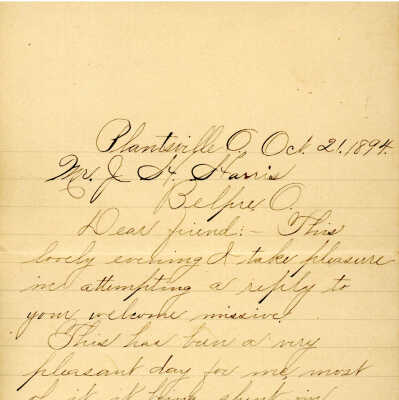 Plantsville O, Oct. 21. 1894.
Mr. J. H. Harris
Belpre, O.
Dear friend:- This
lovely evening I take pleasure
in attempting a reply to
your welcome missive.
This has been a very
pleasant day for me, most
of it being spent in